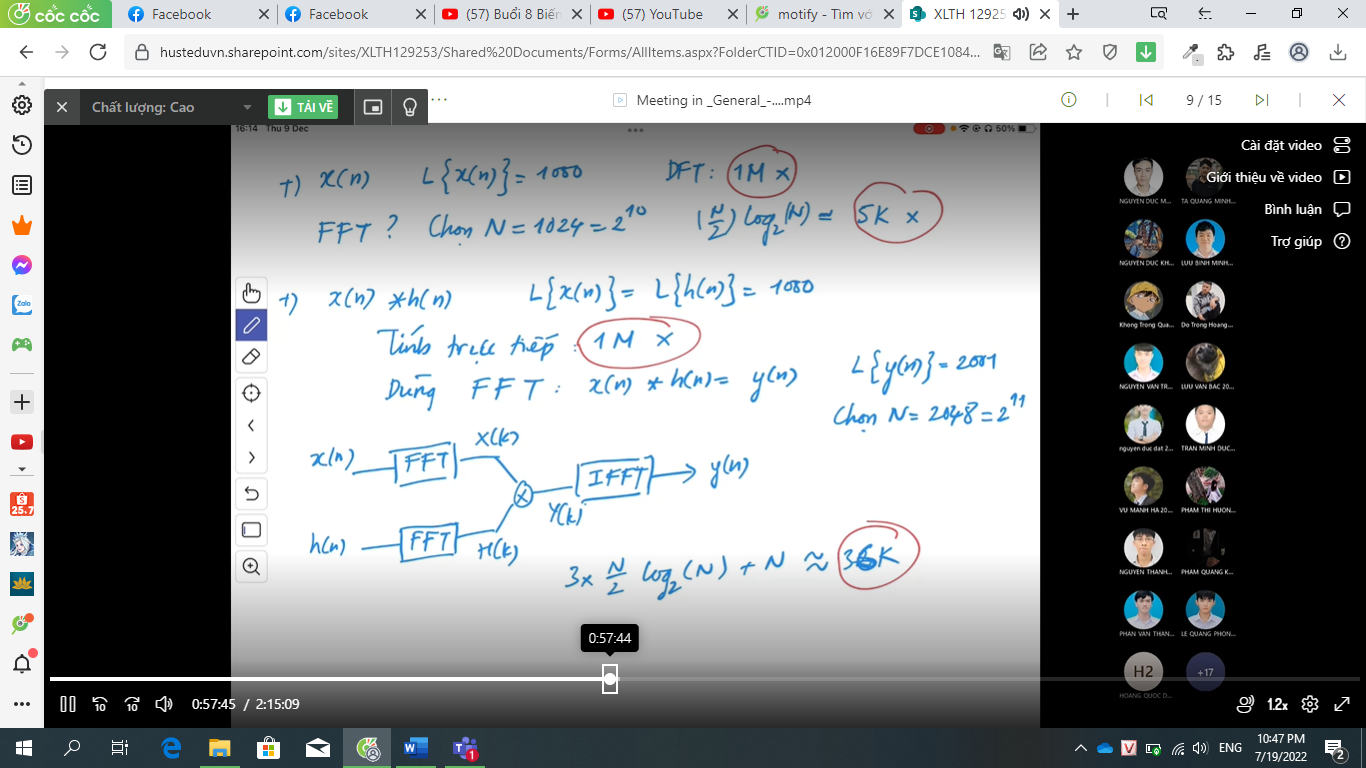 cốc cốc
Facebook
Facebook
(57) Buổi 8 Biến
(57) YouTube
motify - Tìm vớ
XLTH 12925
husteduvn.sharepoint.com/sites/XLTH129253/Shared%20Documents/Forms/AllItems.aspx?FolderCTID=0x012000F16E89F7DCE1084...
Chất lượng: Cao
TẢI VỀ
Meeting in _General_-....mp4
9 / 15
16:14 Thu 9 Dec
50%
Cài đặt video
Giới thiệu về video
Bình luận
Trợ giúp
+) x(n) L{x(n)} = 1000 DFT: 1M x
FFT? Chọn N = 1024 = 2^10 (N/2) log2(N) = 5K x
+) x(n) * h(n) L{x(n)} = L{h(n)} = 1000
Tính trực tiếp: 1M x
Dùng FFT: x(n) * h(n) = y(n)
L{y(n)} = 2001
Chọn N = 2048 = 2^11
x(n) FFT X(k)
IFFT y(n)
X
Y(k)
h(n) FFT H(k)
3 x N/2 log2(N) + N ≈ 36K
NGUYEN DUC M...
TA QUANG MINH...
NGUYEN DUC KH...
LUU BINH MINH...
Khong Trong Qua...
Do Trong Hoang...
NGUYEN VAN TR...
LUU VAN BAC 20...
nguyen duc dat 2...
TRAN MINH DUC...
VU MANH HA 20...
PHAM THI HUON...
NGUYEN THANH...
PHAM QUANG K...
PHAN VAN THAN...
LE QUANG PHON...
H2
+17
HOANG QUOC D...
Zalo
25.7
0:57:44
10
10
0:57:45 / 2:15:09
1.2x
ENG
10:47 PM
7/19/2022
1
2